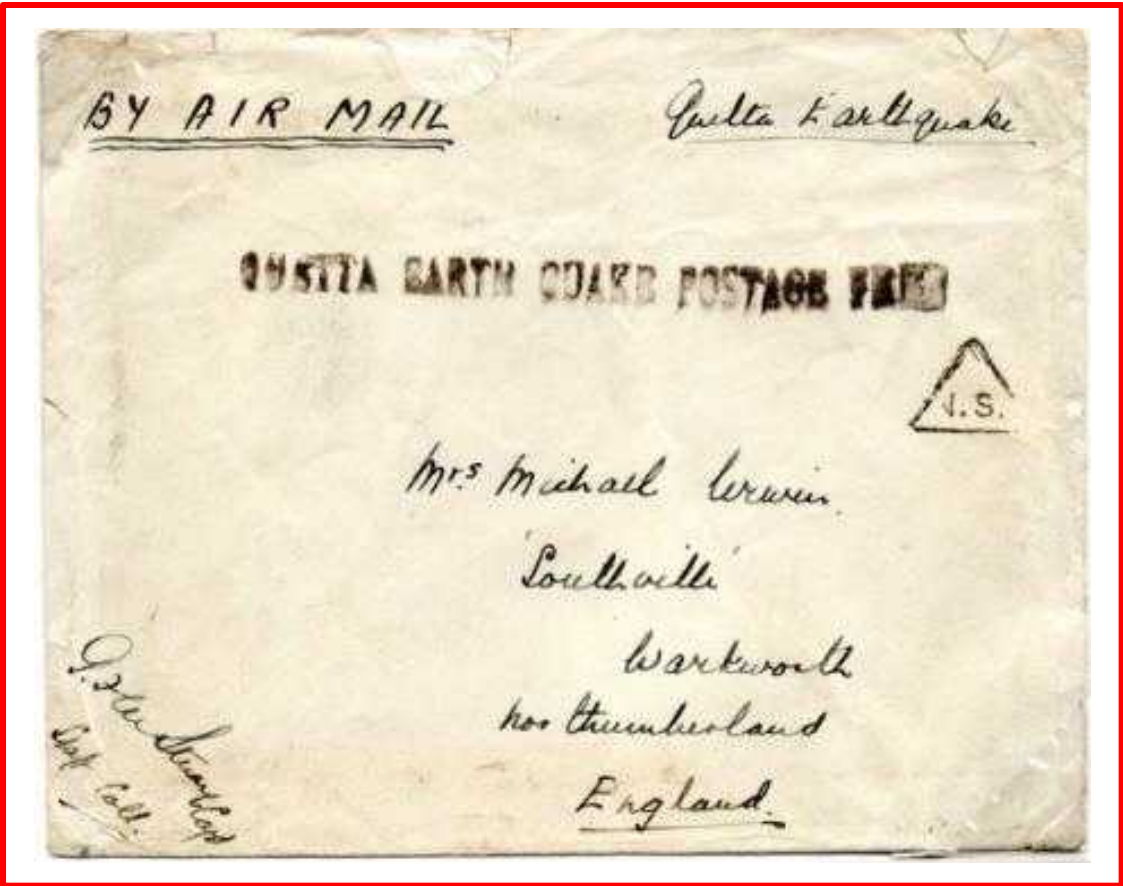 BY AIR MAIL
Quetta Earthquake
QUETTA EARTH QUAKE POSTAGE FREE
I.S.
Mrs Michael Irwin
Southville
Warkworth
Northumberland
England.
Capt
Staff Coll.